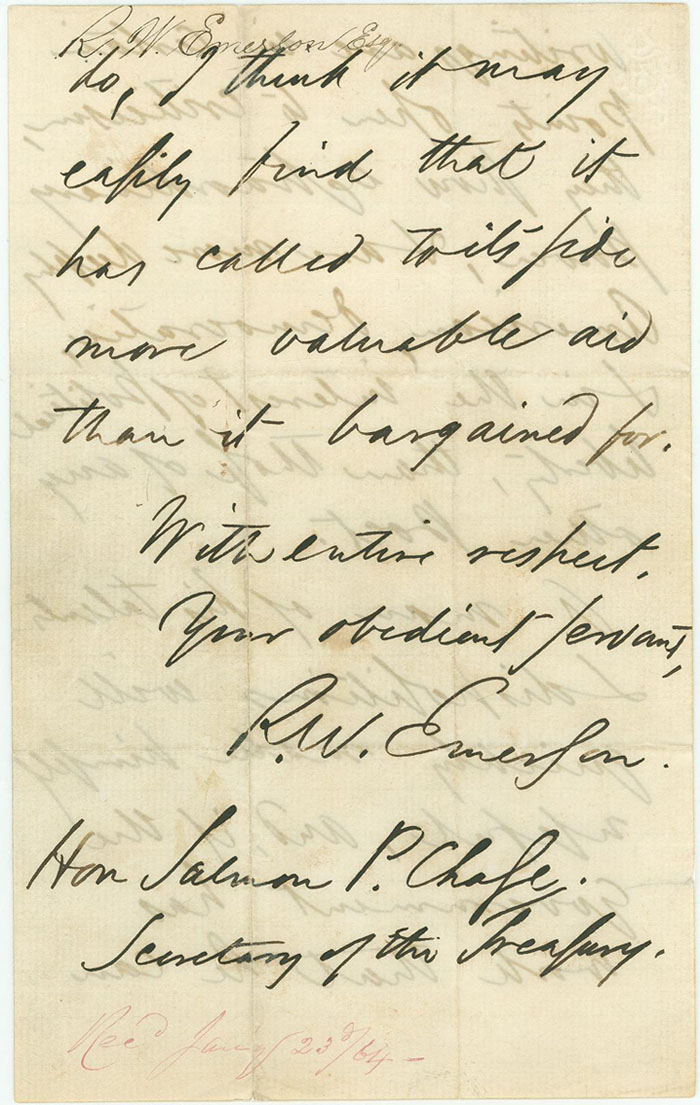 R. W. Emerson Esq.
do, I think it may
easily find that it
has called to its side
more valuable aid
than it bargained for.
With entire respect,
Your obedient servant,
R. W. Emerson.
Hon Salmon P. Chase.
Secretary of the Treasury.
Recd Jany 23d/64 –